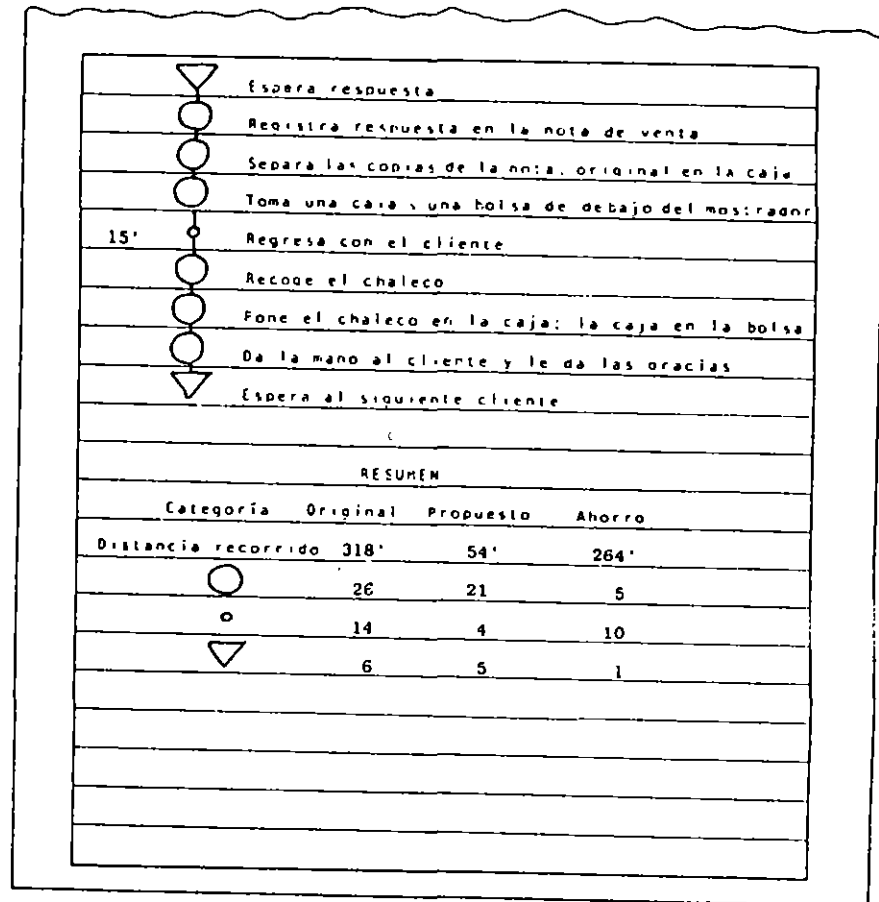 Espera respuesta
Registra respuesta en la nota de venta
Separa las copias de la nota, original en la caja
Toma una caja y una bolsa de debajo del mostrador
15' Regresa con el cliente
Recoge el chaleco
Pone el chaleco en la caja; la caja en la bolsa
Da la mano al cliente y le da las gracias
Espera al siguiente cliente
RESUMEN
Categoría Original Propuesto Ahorro
Distancia recorrido 318' 54' 264'
26 21 5
14 4 10
6 5 1